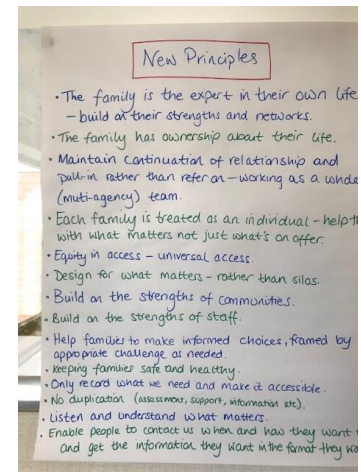 New Principles
• The family is the expert in their own life
– build on their strengths and networks.
• The family has ownership about their life.
• Maintain continuation of relationship and
pull-in rather than refer on – working as a whole
(muti-agency) team.
• Each family is treated as an individual – help
with what matters not just what's on offer.
• Equity in access – universal access.
• Design for what matters – rather than silos.
• Build on the strengths of communities.
• Build on the strengths of staff.
• Help families to make informed choices, framed by
appropriate challenge as needed.
• Keeping families safe and healthy.
• Only record what we need and make it accessible.
• No duplication (assessment, support, information etc).
• Listen and understand what matters.
• Enable people to contact us when and how they want
and get the information they want in the format they